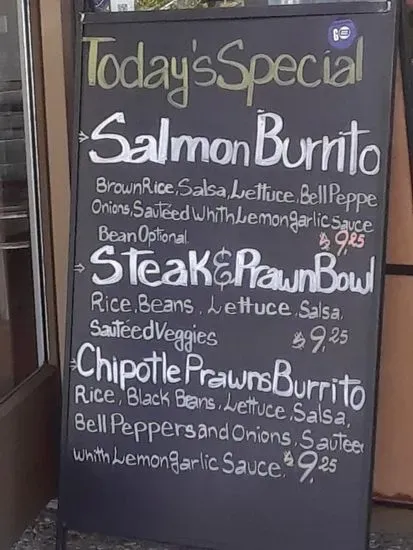 Today's Special
Salmon Burrito
Brown Rice, Salsa, Lettuce, Bell Peppe
Onions, Sautéed Whith Lemon garlic Sauce
Bean Optional $9.25
Steak & Prawn Bowl
Rice, Beans, Lettuce, Salsa,
Sautéed Veggies $9.25
Chipotle Prawns Burrito
Rice, Black Beans, Lettuce, Salsa,
Bell Peppers and Onions, Sautee
whith Lemon garlic Sauce. $9.25